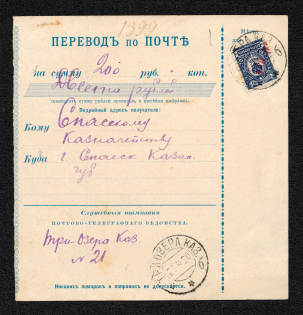 1399
ПЕРЕВОДЪ ПО ПОЧТѢ
на сумму 200 руб. коп.
Двести рублей
Подробный адресъ получателя:
Кому Спасскому
Казначейству
Куда г. Спасск Казан.
губ
Служебныя отмѣтки
ПОЧТОВО-ТЕЛЕГРАФНАГО ВѢДОМСТВА.
Три-Озера Каз.
№ 21
ТРИ ОЗЕРА КАЗ.
Никакихъ помарокъ и поправокъ не допускается.